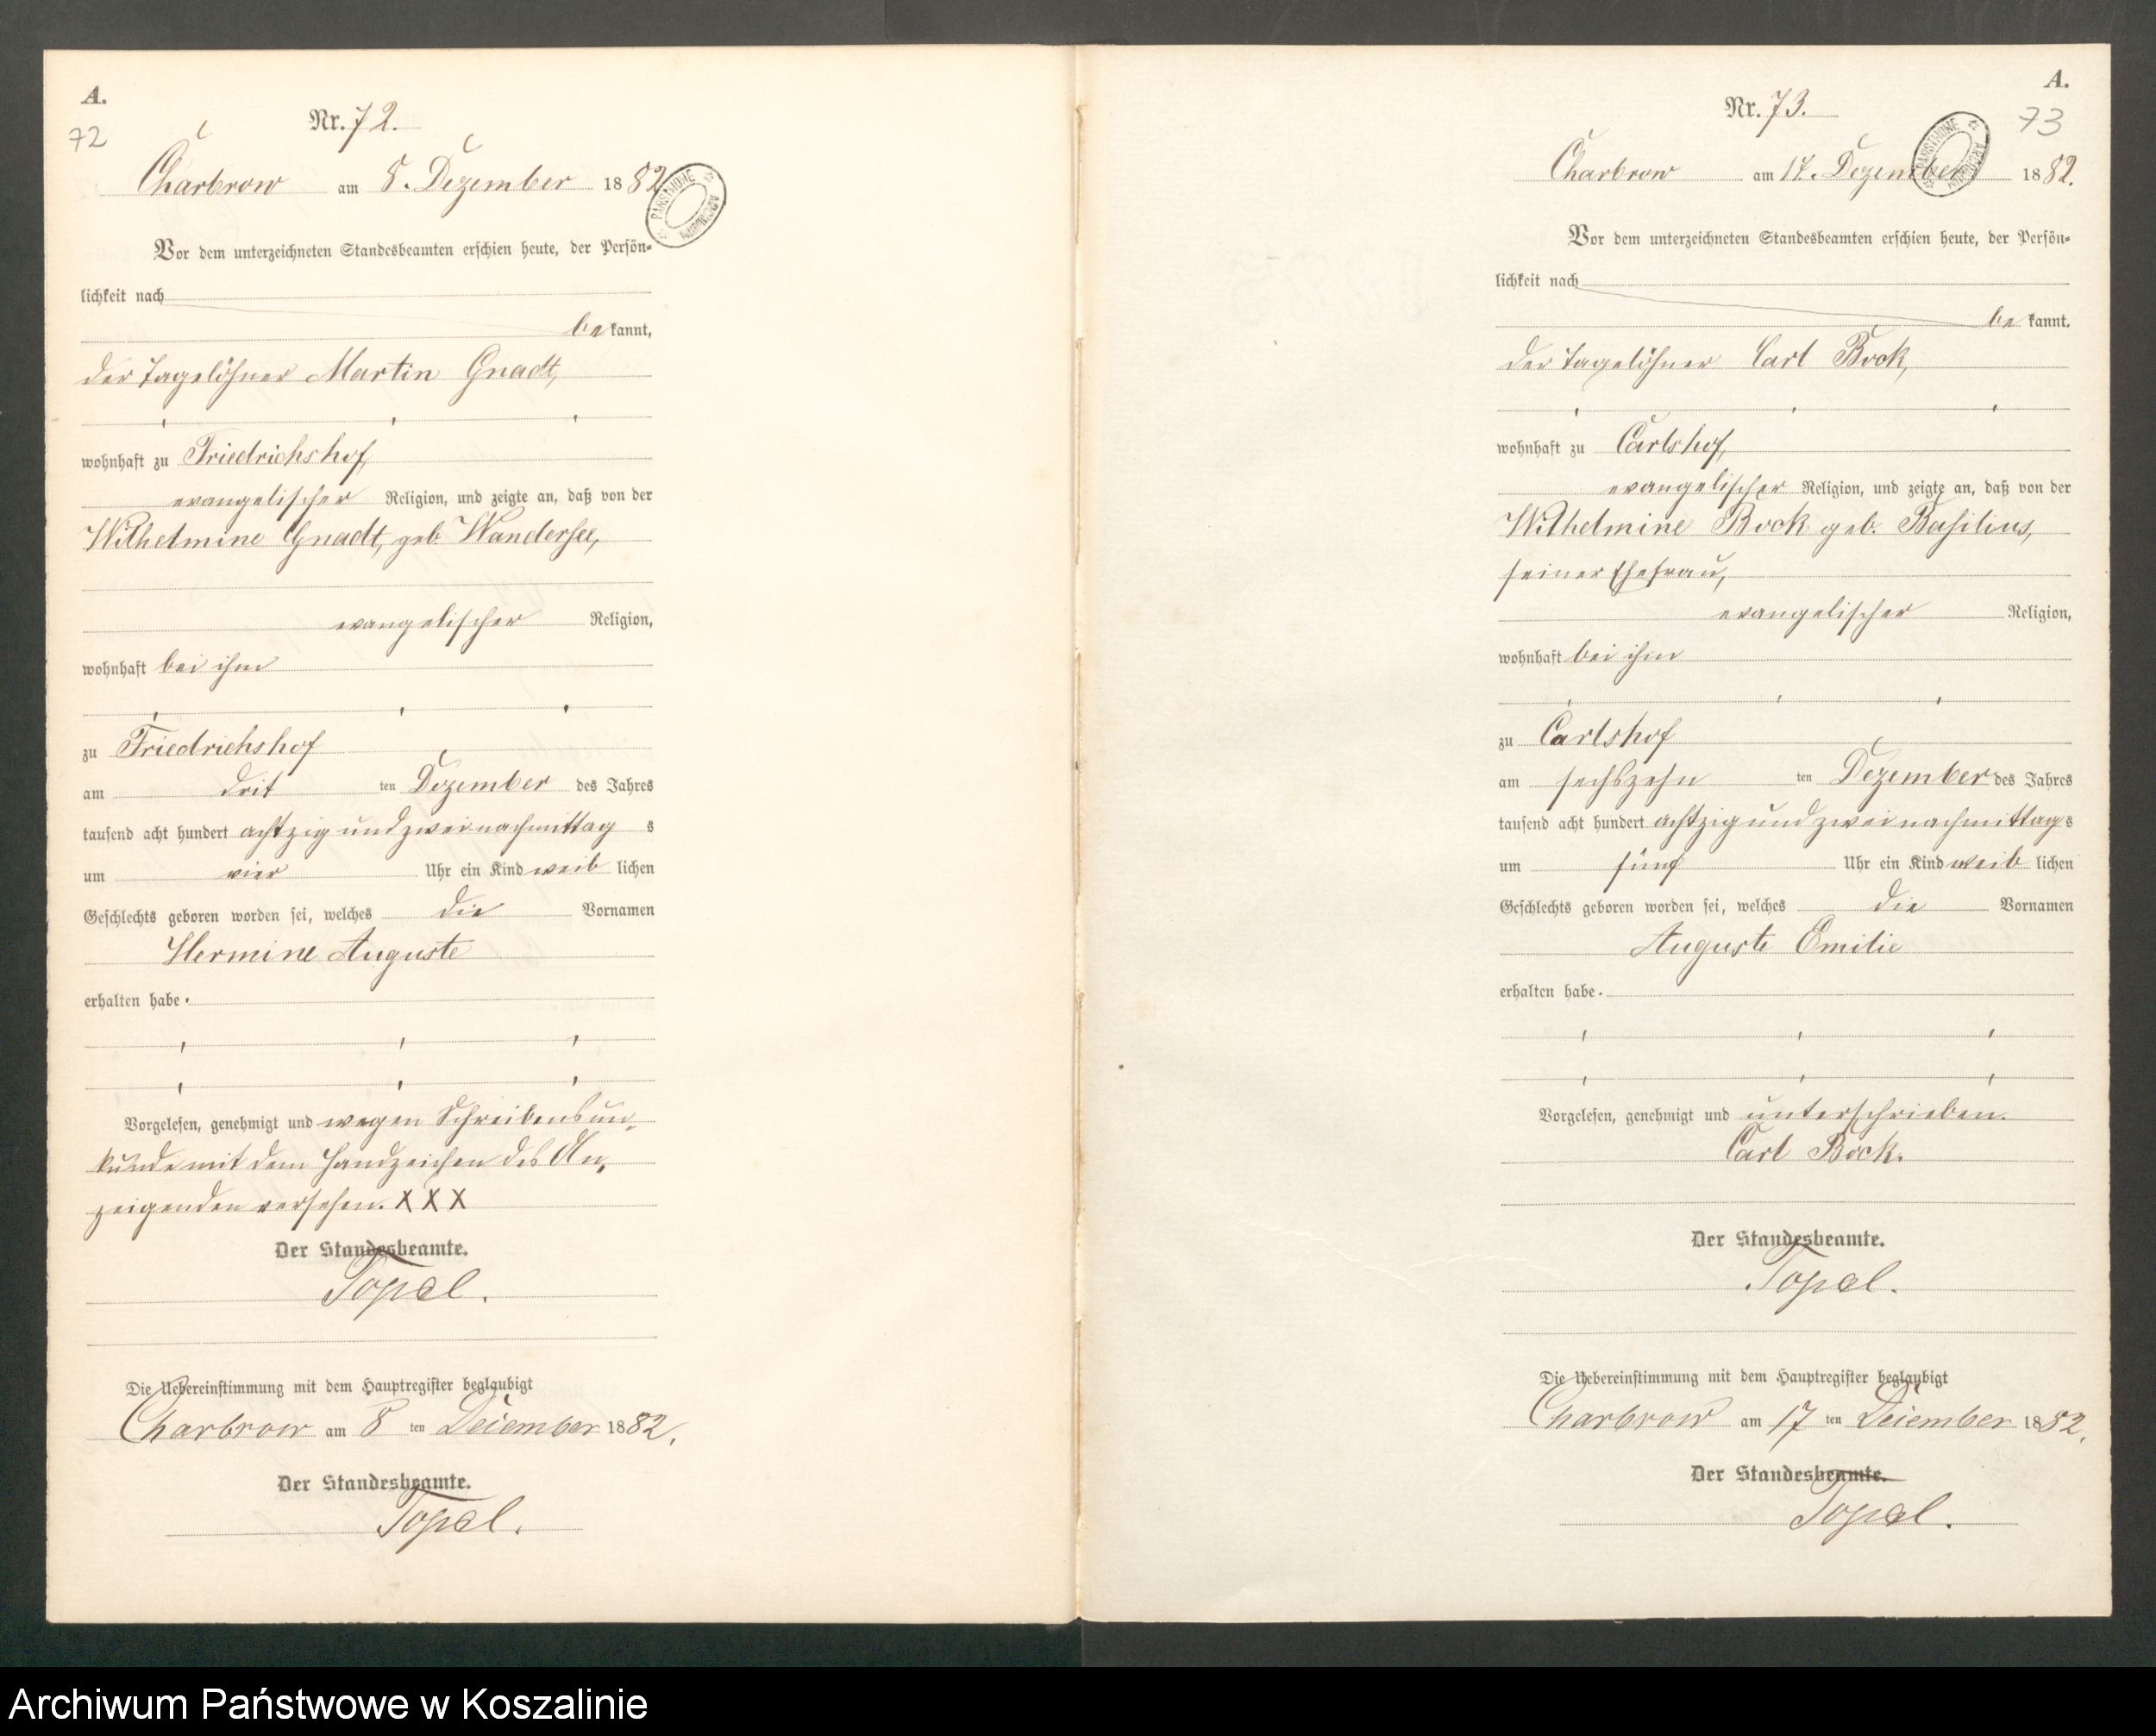 A.
72
Nr. 72.
Charbrow am 8. Dezember 1882
PAŃSTWOWE ARCHIWUM
Vor dem unterzeichneten Standesbeamten erschien heute, der Persön-
lichkeit nach
be kannt,
der Tagelöhner Martin Gnadt,
wohnhaft zu Friedrichshof,
evangelischer Religion, und zeigte an, daß von der
Wilhelmine Gnadt, geb. Wandersee,
evangelischer Religion,
wohnhaft bei ihm
zu Friedrichshof
am drit ten Dezember des Jahres
tausend acht hundert achtzig und zwei nachmittag s
um vier Uhr ein Kind weib lichen
Geschlechts geboren worden sei, welches die Vornamen
Hermine Auguste
erhalten habe.
Vorgelesen, genehmigt und wegen Schreibensun-
kunde mit dem Handzeichen des An-
zeigenden versehen. X X X
Der Standesbeamte.
Topel.
Die Uebereinstimmung mit dem Hauptregister beglaubigt
Charbrow am 8 ten Dezember 1882.
Der Standesbeamte.
Topel.
A.
73
Nr. 73.
Charbrow am 17. Dezember 1882.
PAŃSTWOWE ARCHIWUM
Vor dem unterzeichneten Standesbeamten erschien heute, der Persön-
lichkeit nach
be kannt,
der Tagelöhner Carl Bock,
wohnhaft zu Carlshof,
evangelischer Religion, und zeigte an, daß von der
Wilhelmine Bock geb. Basilius,
seiner Ehefrau,
evangelischer Religion,
wohnhaft bei ihm
zu Carlshof
am sechszehn ten Dezember des Jahres
tausend acht hundert achtzig und zwei nachmittag s
um fünf Uhr ein Kind weib lichen
Geschlechts geboren worden sei, welches die Vornamen
Auguste Emilie
erhalten habe.
Vorgelesen, genehmigt und unterschrieben.
Carl Bock.
Der Standesbeamte.
Topel.
Die Uebereinstimmung mit dem Hauptregister beglaubigt
Charbrow am 17 ten Dezember 1882.
Der Standesbeamte.
Topel.
Archiwum Państwowe w Koszalinie